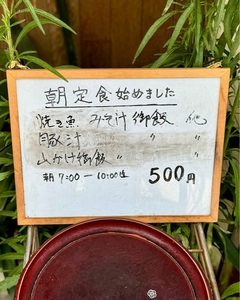 朝定食始めました
焼き魚 みそ汁 御飯 他
豚汁 〃 〃
山かけ御飯 〃
朝 7:00―10:00迄 500円